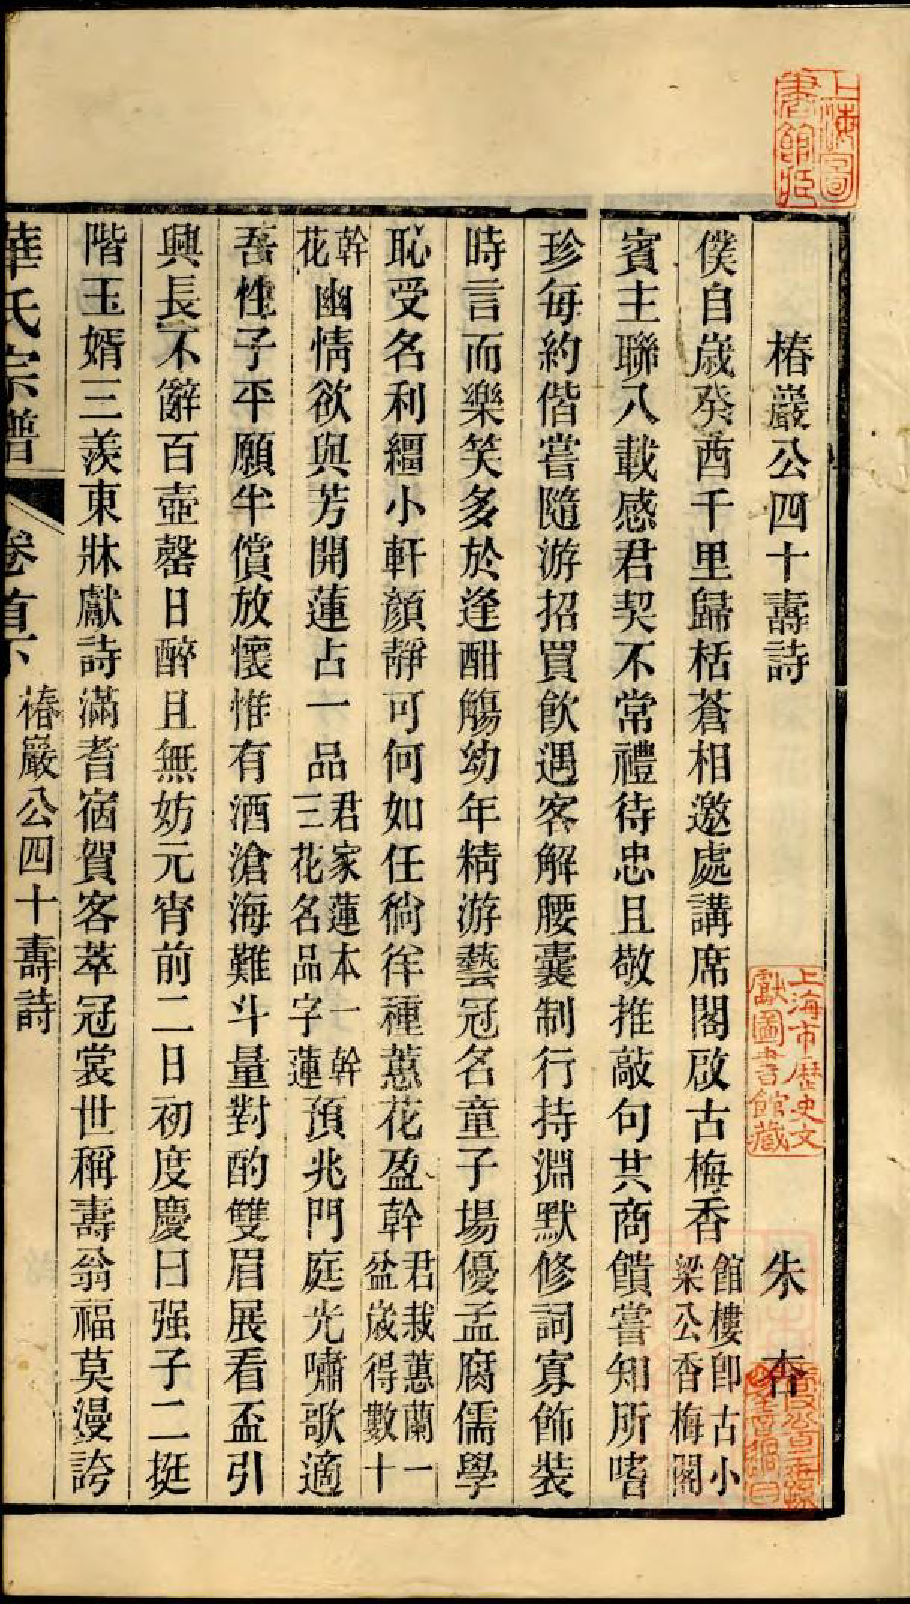 上海圖書館藏
椿巖公四十壽詩
朱杏
僕自歲癸酉千里歸栝蒼相邀處講席閣啟古梅香館樓卽古小梁公香梅閣
賓主聯八載感君契不常禮待忠且敬推敲句共商饋嘗知所嗜
珍每約偕嘗隨游招買飮遇客解腰囊制行持淵默修詞寡飾裝
時言而樂笑多於逢酣觴幼年精游藝冠名童子場優孟腐儒學
恥受名利繮小軒顏靜可何如任徜徉種蕙花盈幹君栽蕙蘭一盆歲得數十
幹花幽情欲與芳開蓮占一品君家蓮本一幹三花名品字蓮預兆門庭光嘯歌適
吾性子平願半償放懷惟有酒滄海難斗量對酌雙眉展看盃引
興長不辭百壺罄日醉且無妨元宵前二日初度慶日强子二挺
階玉婿三羨東牀獻詩滿耆宿賀客萃冠裳世稱壽翁福莫漫誇
華氏宗譜
卷首下
椿巖公四十壽詩
上海市歷史文獻圖書館藏